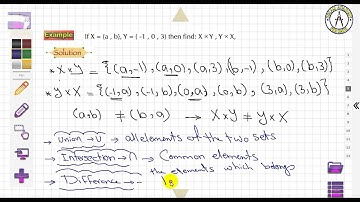 Example If X = (a , b), Y = ( -1 , 0 , 3) then find: X × Y , Y × X,
Solution
* X x Y = {(a,-1), (a,0), (a,3), (b,-1), (b,0), (b,3)}
* Y x X = {(-1,a), (-1,b), (0,a), (0,b), (3,a), (3,b)}
(a,b) ≠ (b,a) → X x Y ≠ Y x X
→ Union → U all elements of the two sets
→ Intersection → ∩ Common elements
→ Difference → - the elements which belongs